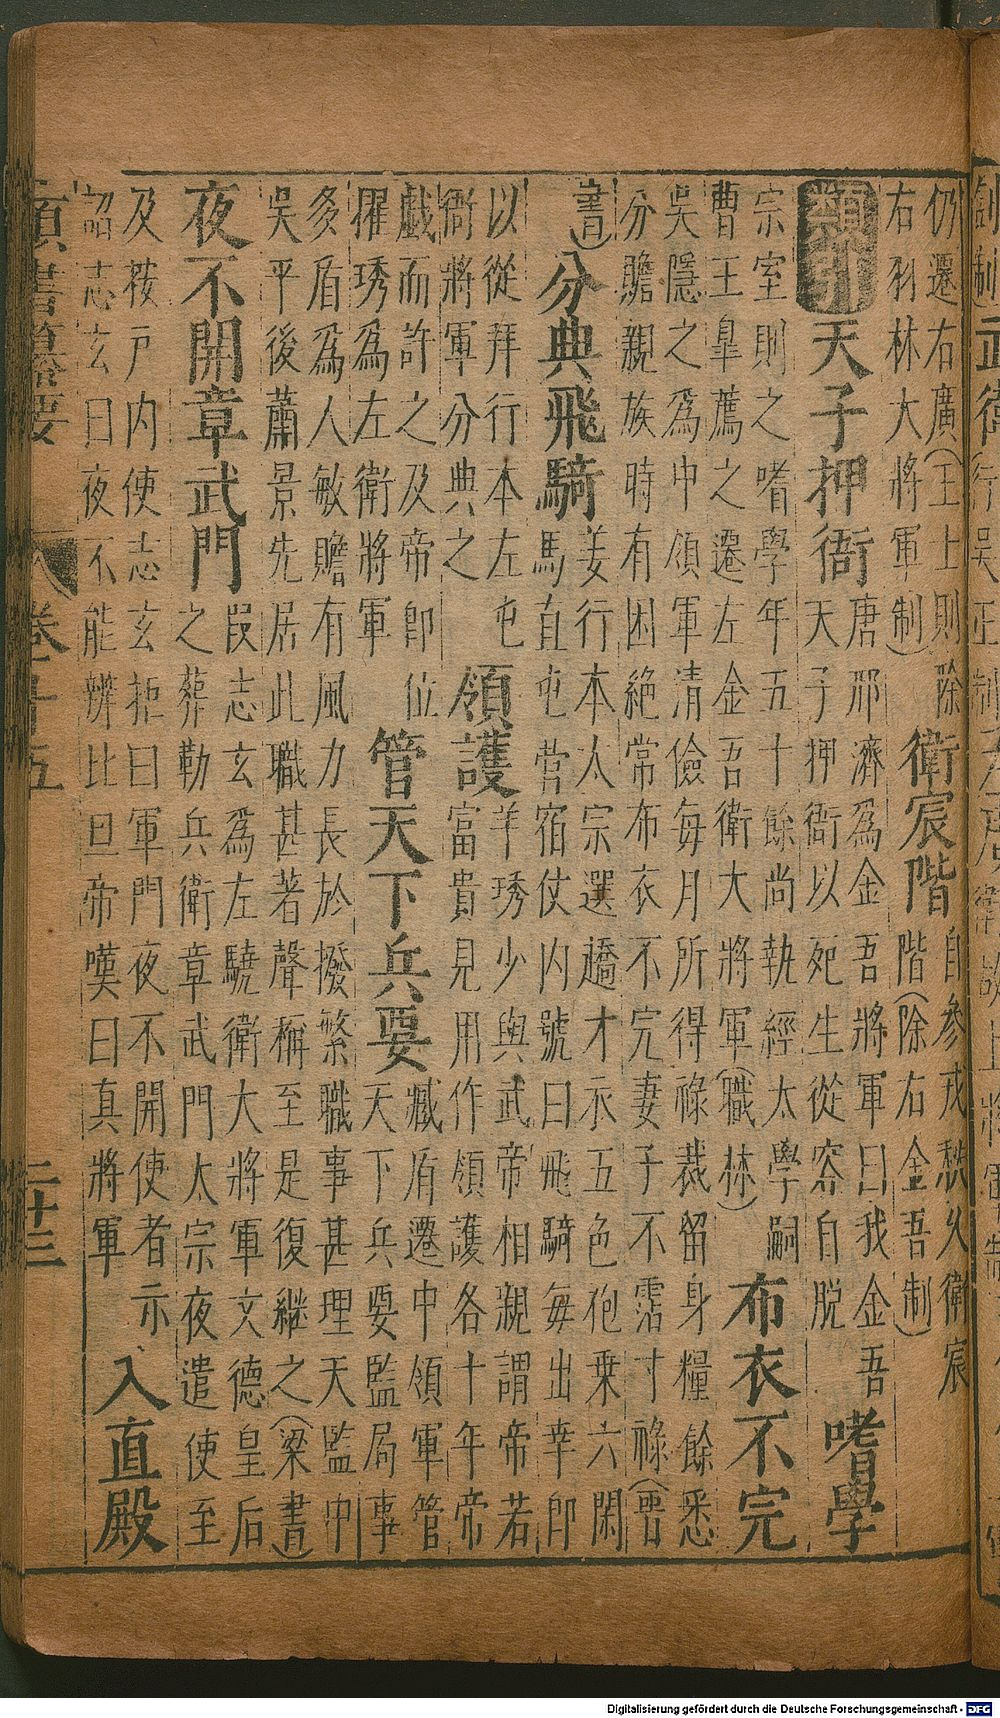 仍遷右廣(王上則除
右羽林大將軍制)
衛宸階
自參戎秩久衛宸
階(除右金吾制)
類引
天子押衙
唐邢濟為金吾將軍曰我金吾
天子押衙以死生從容自脫
嗜學
宗室則之嗜學年五十餘尚執經太學嗣
曹王皋薦之遷左金吾衛大將軍(職林)
布衣不完
吳隱之為中領軍清儉每月所得祿裁留身糧餘悉
分贍親族時有困絕常布衣不完妻子不霑寸祿(晉
書)
分典飛騎
姜行本太宗選趫才衣五色袍乗六閑
馬直屯營宿仗內號曰飛騎每出幸即
以從拜行本左屯
衛將軍分典之
領護
羊琇少與武帝相親謂帝若
富貴見用作領護各十年帝
戲而許之及帝即位
擢琇為左衛將軍
管天下兵要
臧盾遷中領軍管
天下兵要監局事
多盾為人敏贍有風力長於撥繁職事甚理天監中
吳平後蕭景先居此職甚著聲稱至是復繼之(梁書)
夜不開章武門
段志玄為左驍衛大將軍文德皇后
之葬勒兵衛章武門太宗夜遣使至
及 戶內使志玄拒曰軍門夜不開使者示
詔志玄曰夜不能辨比旦帝嘆曰真將軍
入直殿
類書纂要 卷 十五 二十三
Digitalisierung gefördert durch die Deutsche Forschungsgemeinschaft - DFG